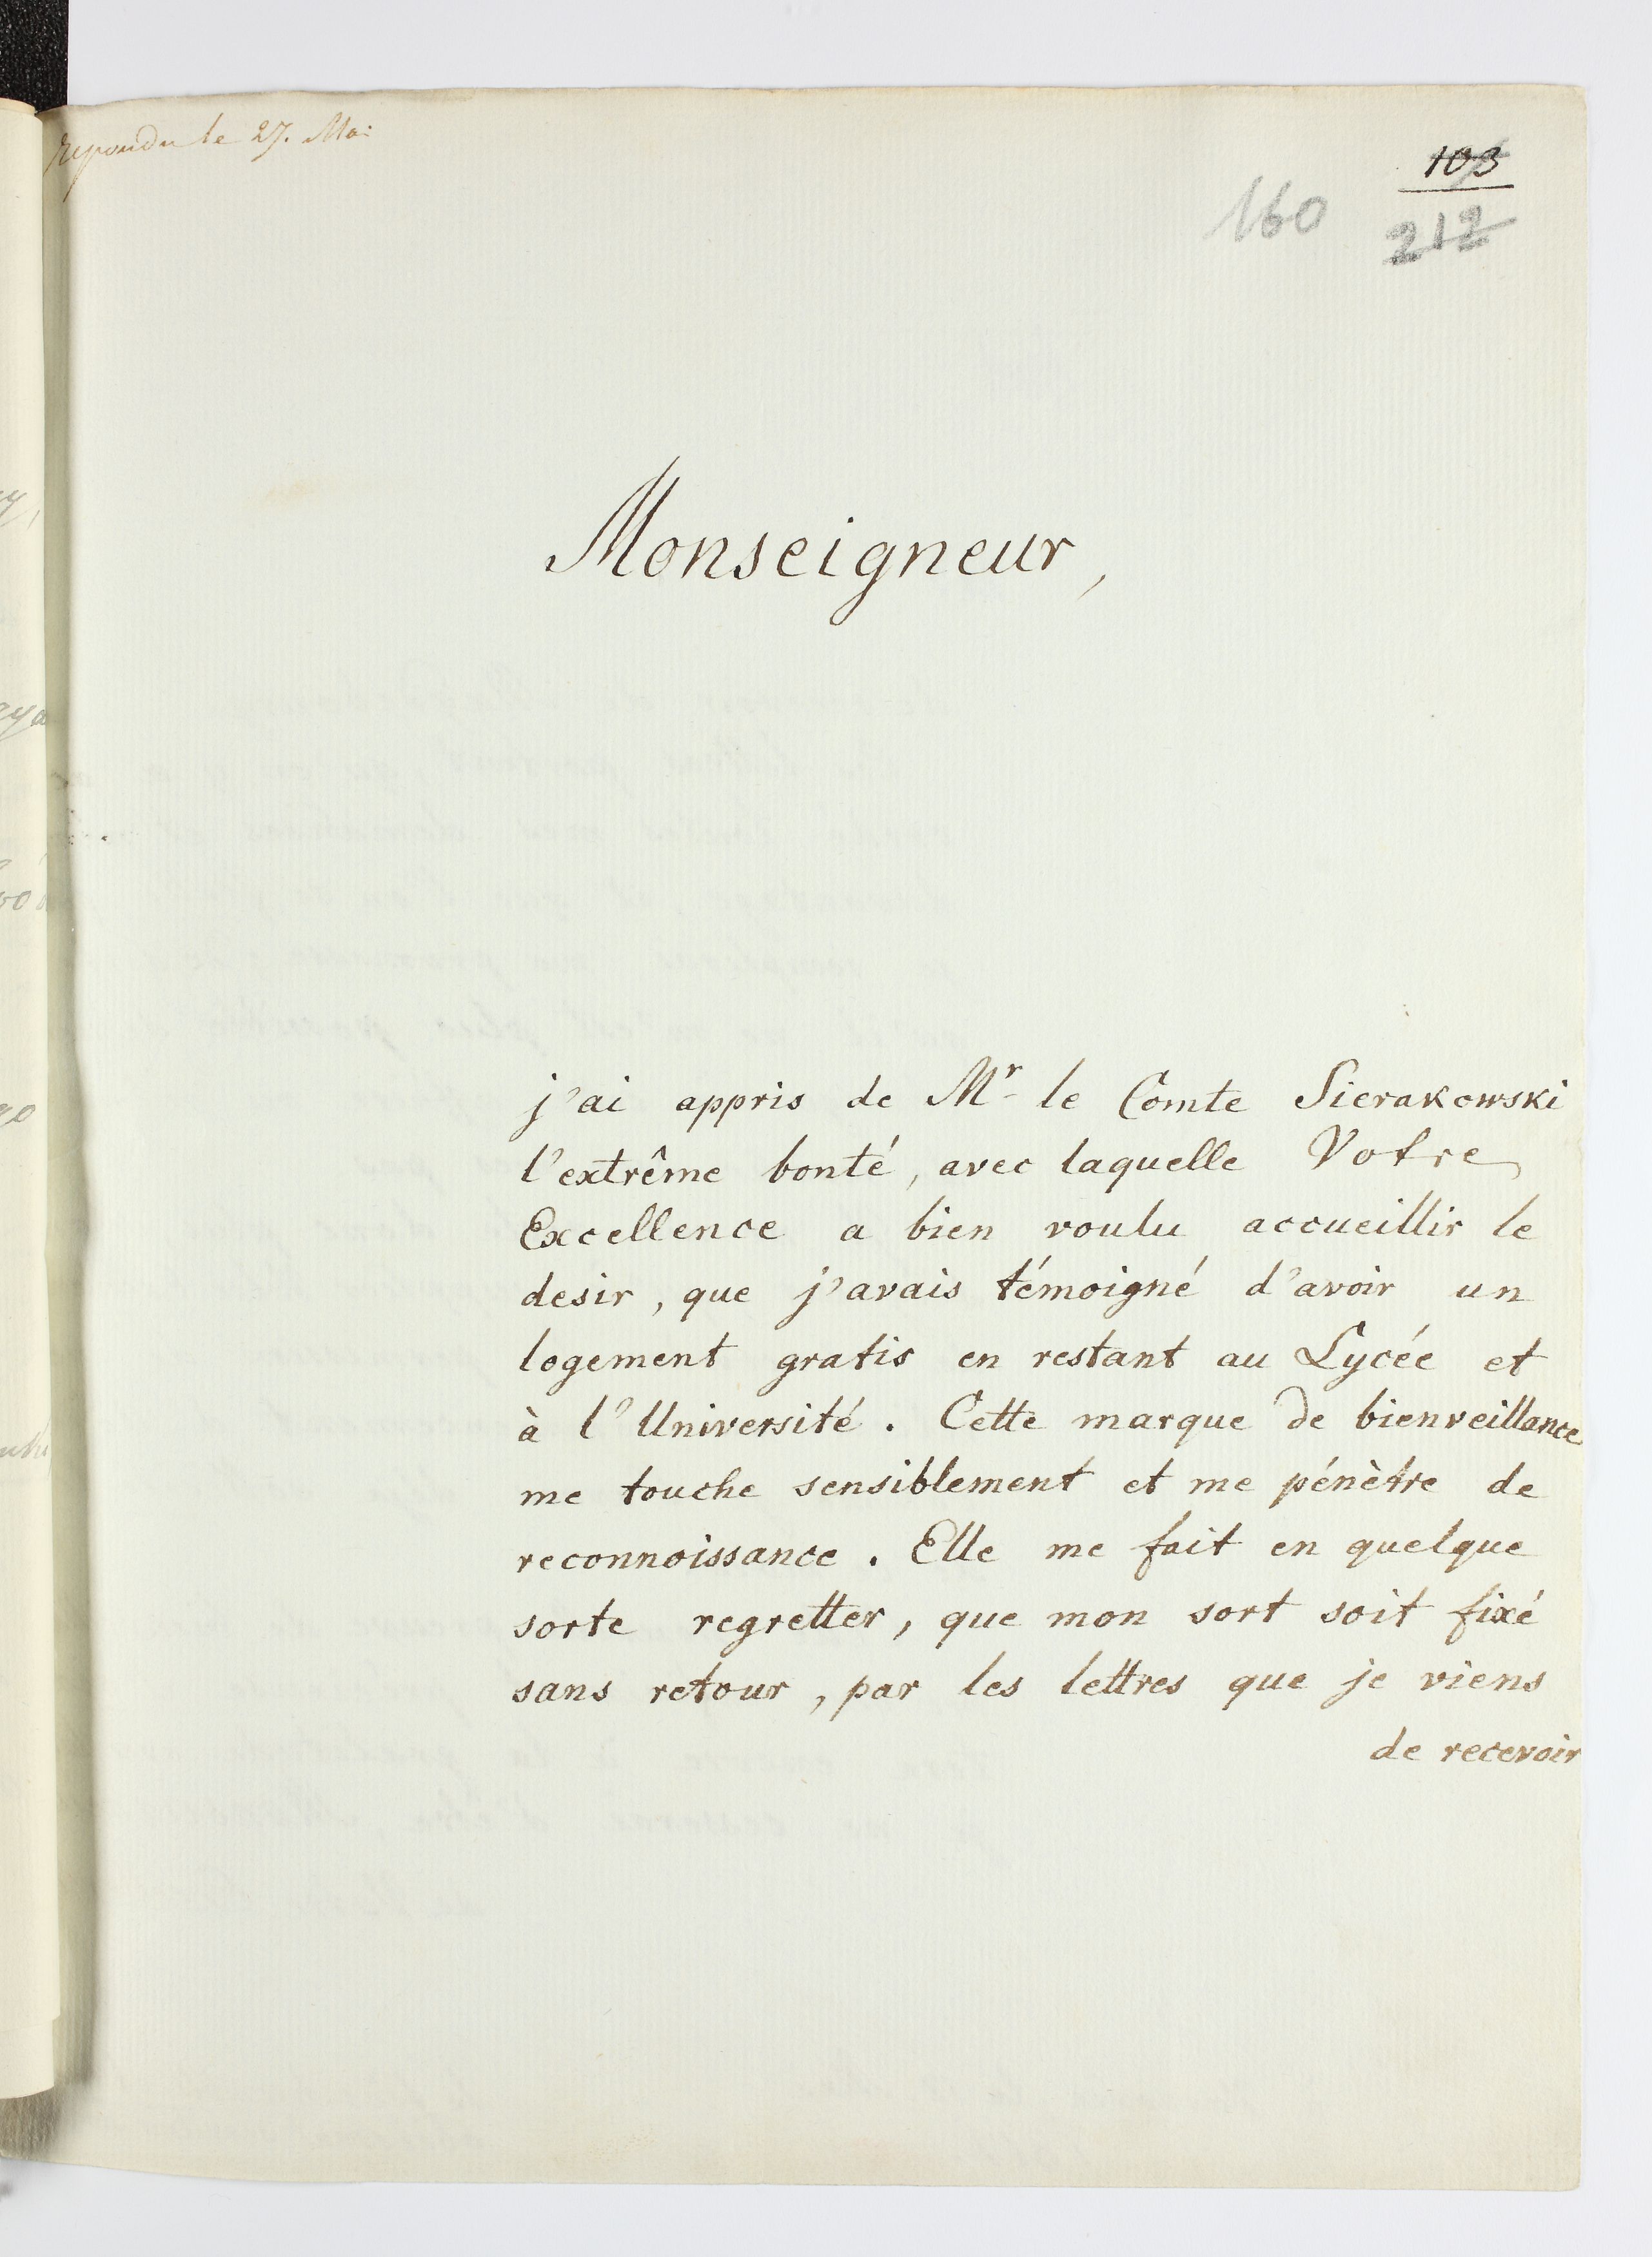 repondu le 27. Mai
103
160
212
Monseigneur,
j'ai appris de Mr le Comte Sierakowski
l'extrême bonté, avec laquelle Votre
Excellence a bien voulu accueillir le
desir, que j'avais témoigné d'avoir un
logement gratis en restant au Lycée et
à l'Université. Cette marque de bienveillance
me touche sensiblement et me pénètre de
reconnoissance. Elle me fait en quelque
sorte regretter, que mon sort soit fixé
sans retour, par les lettres que je viens
de recevoir